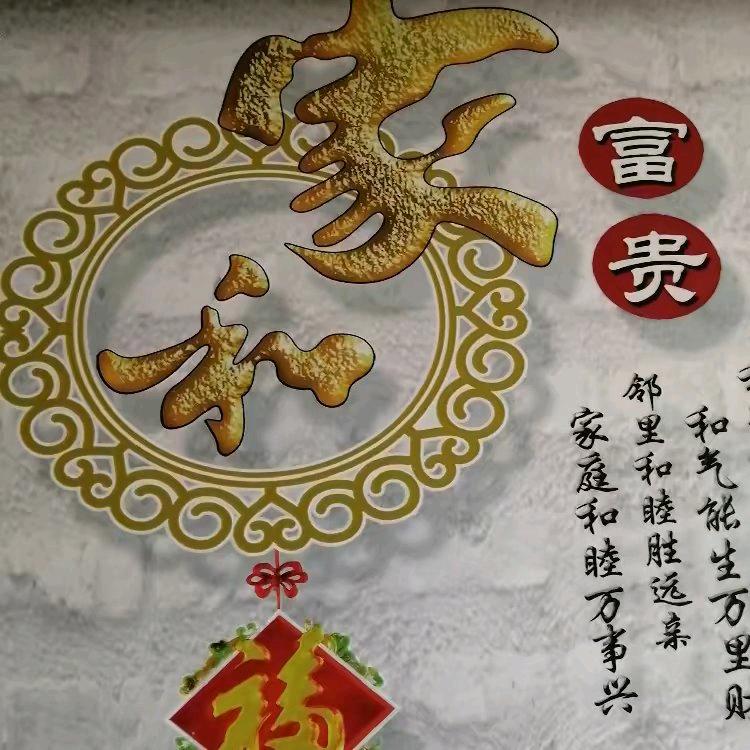 家和
富贵
和气能生万里财
邻里和睦胜远亲
家庭和睦万事兴
福